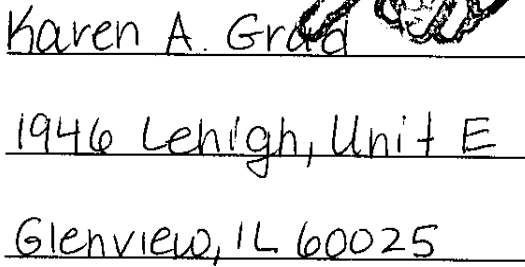 Karen A. Grad
1946 Lehigh, Unit E
Glenview, IL 60025